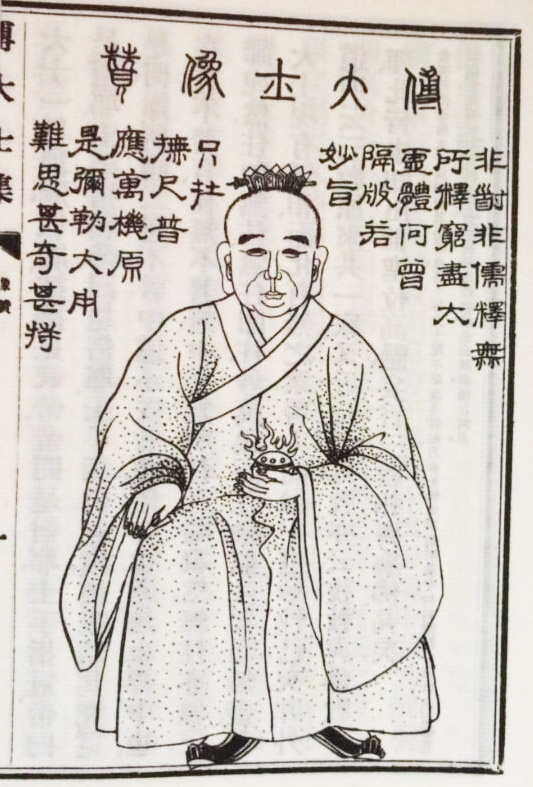 傅大士像贊
非衜非儒釋無
所釋窮盡太
虛體何曾
隔般若
妙旨
只扗
撫尺普
應萬機原
是彌勒大用
難思甚奇甚特
傅大士集
像贊
一